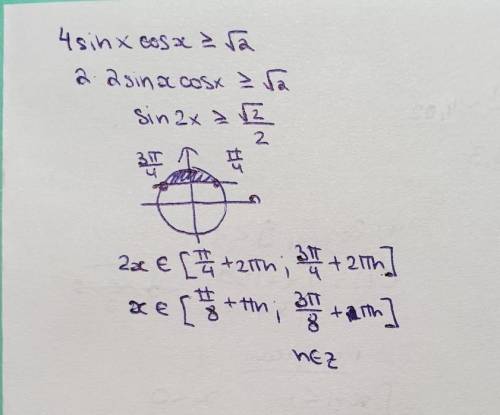 4sinx cosx ≥ √2
2·2sinx cosx ≥ √2
sin2x ≥ √2/2
3π/4 π/4
2x ∈ [π/4 + 2πn; 3π/4 + 2πn]
x ∈ [π/8 + πn; 3π/8 + πn]
n∈z